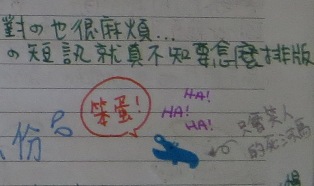 對の也很麻煩...
の短訊就真不知要怎麼排版
笨蛋!
HA!
HA!
HA!
份
只會笑人
的死河馬